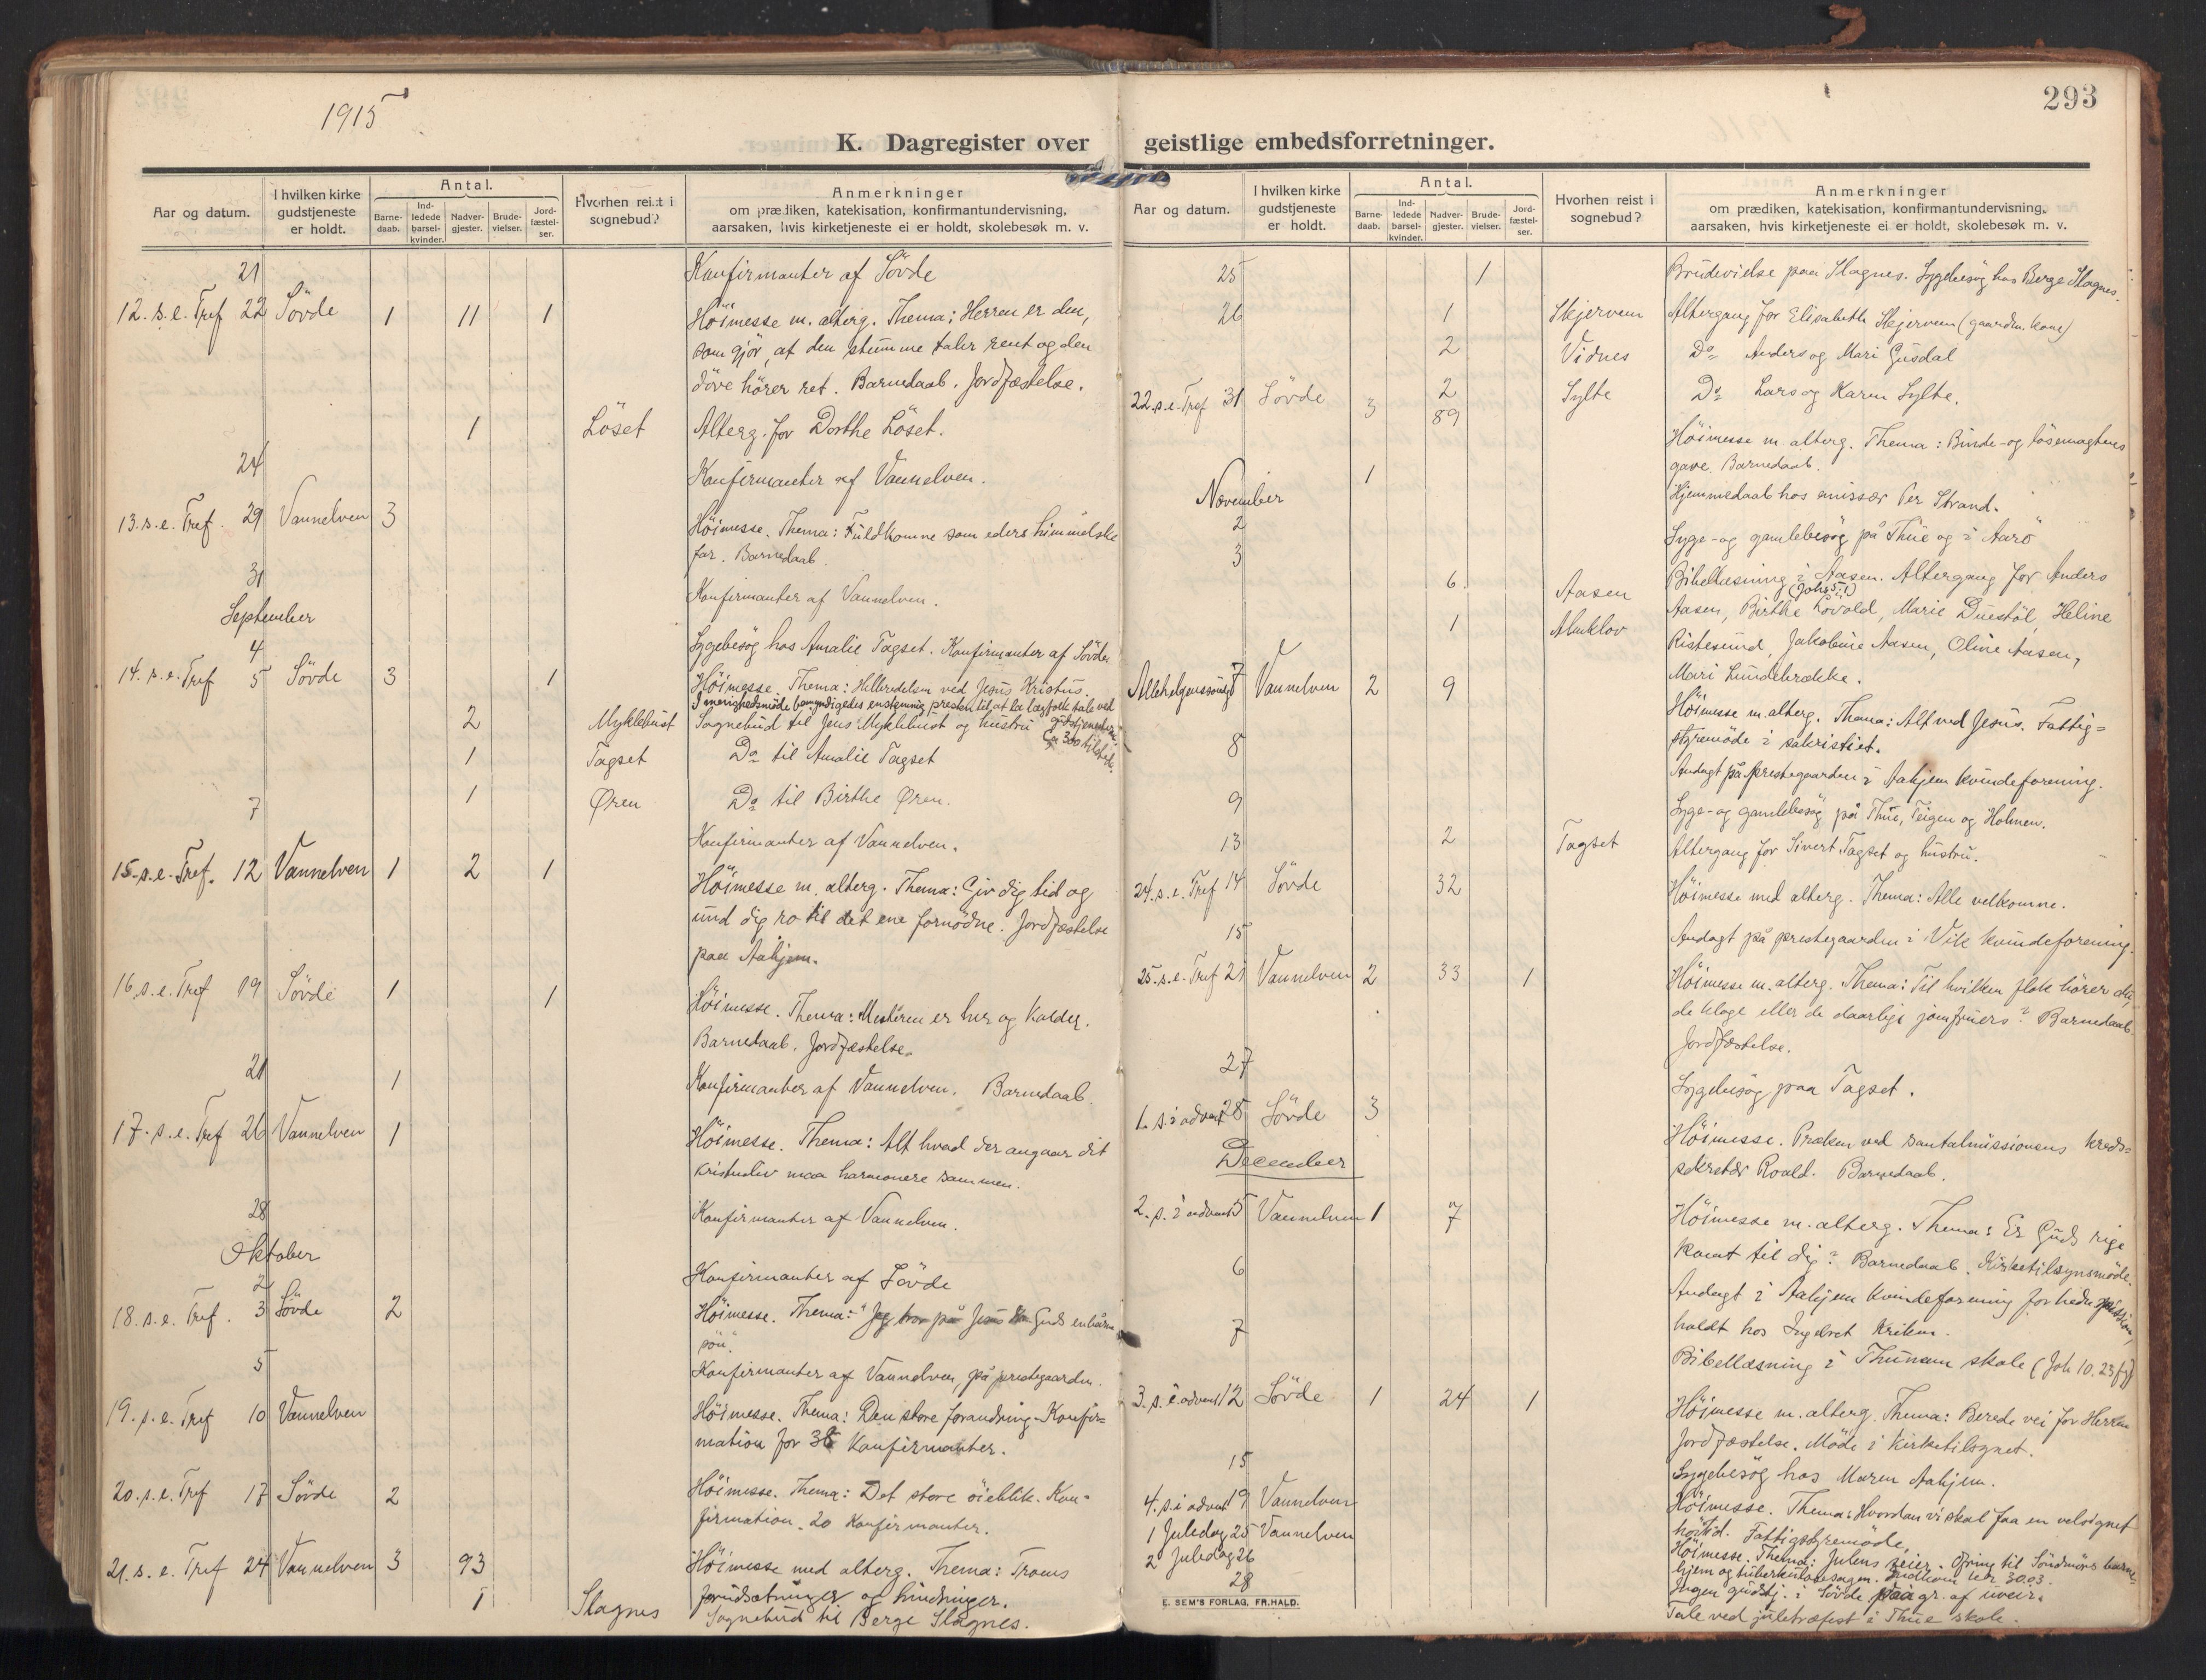 1915
293
K. Dagregister over geistlige embedsforretninger.
Aar og datum.
I hvilken kirke gudstjeneste er holdt.
Antal.
Barne-daab.
Ind-ledede barsel-kvinder.
Nadver-gjester.
Brude-vielser.
Jord-fæstel-ser.
Hvorhen reist i sognebud?
Anmerkninger
om prædiken, katekisation, konfirmantundervisning,
aarsaken, hvis kirketjeneste ei er holdt, skolebesøk m. v.
21 Konfirmanter af Sövde
12. s. e. Tref 22 Sövde 1 11 1 Höimesse m. alterg. Thema: Herren er den,
som gjör, at den stumme taler rent og den
döve hörer ret. Barnedaab. Jordfæstelse.
1 Löset Alterg. for Dorthe Löset.
24 Konfirmanter af Vannelven.
13. s. e. Tref. 29 Vannelven 3 Höimesse. Thema: Fuldkomne som eders himmelske
far. Barnedaab.
31 Konfirmanter af Vannelven.
September
4 Sygebesög hos Amalie Tagset. Konfirmanter af Sövde
14. s. e. Tref 5 Sövde 3 1 Höimesse. Thema: Helbredelsen ved Jesus Kristus.
I menighedsmöde bemyndigedes enstemmig presten til at la lægfolk tale ved
gudstjenesten. Ca 300 tilstede.
2 Myklebust Sognebud til Jens Myklebust og hustru
1 Tagset Do til Amalie Tagset
1 Øren Do til Birthe Øren.
7 Konfirmanter af Vannelven.
15. s. e. Tref. 12 Vannelven 1 2 1 Höimesse m. alterg. Thema: Giv dig tid og
und dig ro til det ene fornödne. Jordfæstelse
paa Aahjem.
16. s. e. Tref 19 Sövde 1 1 Höimesse. Thema: Mesteren er her og kalder.
Barnedaab. Jordfæstelse.
21 1 Konfirmanter af Vannelven. Barnedaab.
17. s. e. Tref 26 Vannelven 1 Höimesse. Thema: Alt hvad der angaar dit
kristenliv maa harmonere sammen.
28 Konfirmanter af Vannelven.
Oktober
2 Konfirmanter af Sövde
18. s. e. Tref. 3 Sövde 2 Höimesse. Thema: "Jeg tror på Jesus Guds enbårne
sön".
5 Konfirmanter af Vannelven, på prestegaarden.
19. s. e. Tref 10 Vannelven Höimesse. Thema: Den store forandring. Konfir=
mation for 38 Konfirmanter.
20. s. e. Tref 17 Sövde 2 Höimesse. Thema: Det store öieblik. Kon-
firmation. 20 Konfirmanter.
21. s. e. Tref 24 Vannelven 3 93 Höimesse med alterg. Thema: Troens
forudsætninger og hindringer.
1 Slagnes Sognebud til Berge Slagnes.
Aar og datum.
I hvilken kirke gudstjeneste er holdt.
Antal.
Barne-daab.
Ind-ledede barsel-kvinder.
Nadver-gjester.
Brude-vielser.
Jord-fæstel-ser.
Hvorhen reist i sognebud?
Anmerkninger
om prædiken, katekisation, konfirmantundervisning,
aarsaken, hvis kirketjeneste ei er holdt, skolebesøk m. v.
25 1 Brudevielse paa Slagnes. Sygebesög hos Berge Slagnes.
26 1 Skjervem Altergang for Elisabeth Skjervem (gaardm. kone)
2 Vidnes Do Anders og Mari Gusdal
2 Sylte Do Lars og Karen Sylte.
22. s. e. Tref 31 Sövde 3 89 Höimesse m. alterg. Thema: Binde- og lösemagtens
gave. Barnedaab.
1 Hjemmedaab hos emissær Per Strand.
November
2 Syge- og gamlebesög på Thue og i Aarö
3 Bibellæsning i Aasen. (Johs 5-1) Altergang for Anders
6 Aasen Aasen, Birthe Lövold, Marie Duestöl, Heline
1 Almklov Ristesund, Jakobine Aasen, Oline Aasen,
Mari Lundebrække.
Allehelgenssöndag 7 Vannelven 2 9 Höimesse m. alterg. Thema: Alt ved Jesus. Fattig=
styremöde i sakristiet.
8 Andagt på prestegaarden i Aahjem kvindeforening.
9 Syge- og gamlebesög på Thue, Teigen og Holmen.
13 2 Tagset Altergang for Sivert Tagset og hustru.
24. s. e. Tref 14 Sövde 32 Höimesse med alterg. Thema: Alle velkomne.
15 Andagt på prestegaarden i Vik kvindeforening.
25. s. e. Tref 21 Vannelven 2 33 1 Höimesse m. alterg. Thema: Til hvilken flok hörer du,
de kloge eller de daarlige jomfruers? Barnedaab
Jordfæstelse.
27 Sygebesög paa Tagset.
1. s. i advent 28 Sövde 3 Höimesse. Præken ved santalmissionens kreds=
sekretær Roald. Barnedaab.
December
2. s. i advent 5 Vannelven 1 7 Höimesse m. alterg. Thema: Er Guds rige
komt til dig? Barnedaab. Kirketilsynsmöde.
6 Andagt i Aahjem kvindeforening for hedningemission,
holdt hos Ingebret Kriken.
7 Bibellæsning i Thunem skole (Joh 10. 23 fg)
3. s. i advent 12 Sövde 1 24 1 Höimesse m. alterg. Thema: Berede vei for Herren
Jordfæstelse. Möde i kirketilsynet.
15 Sygebesög hos Maren Aahjem.
4. s. i advent 19 Vannelven Höimesse. Thema: Hvordan vi skal faa en velsignet
höitid. Fattigstyremöde.
1 Juledag 25 Vannelven Höimesse. Thema: Julens seier. Ofring til Söndmörs barne-
hjem og tuberkulosesagen. Indkom kr 30.03.
2 Juledag 26 Ingen gudstj. i Sövde paa gr. af uveir.
28 Tale ved juletræfest i Thue skole.
E. SEM'S FORLAG, FR.HALD.